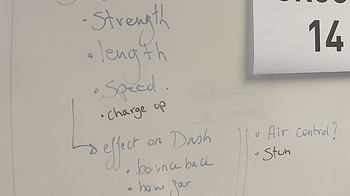 · Strength
· length
· Speed.
· charge up
effect on Dash
· bounce back
· how far
· Air control?
· Stun
14